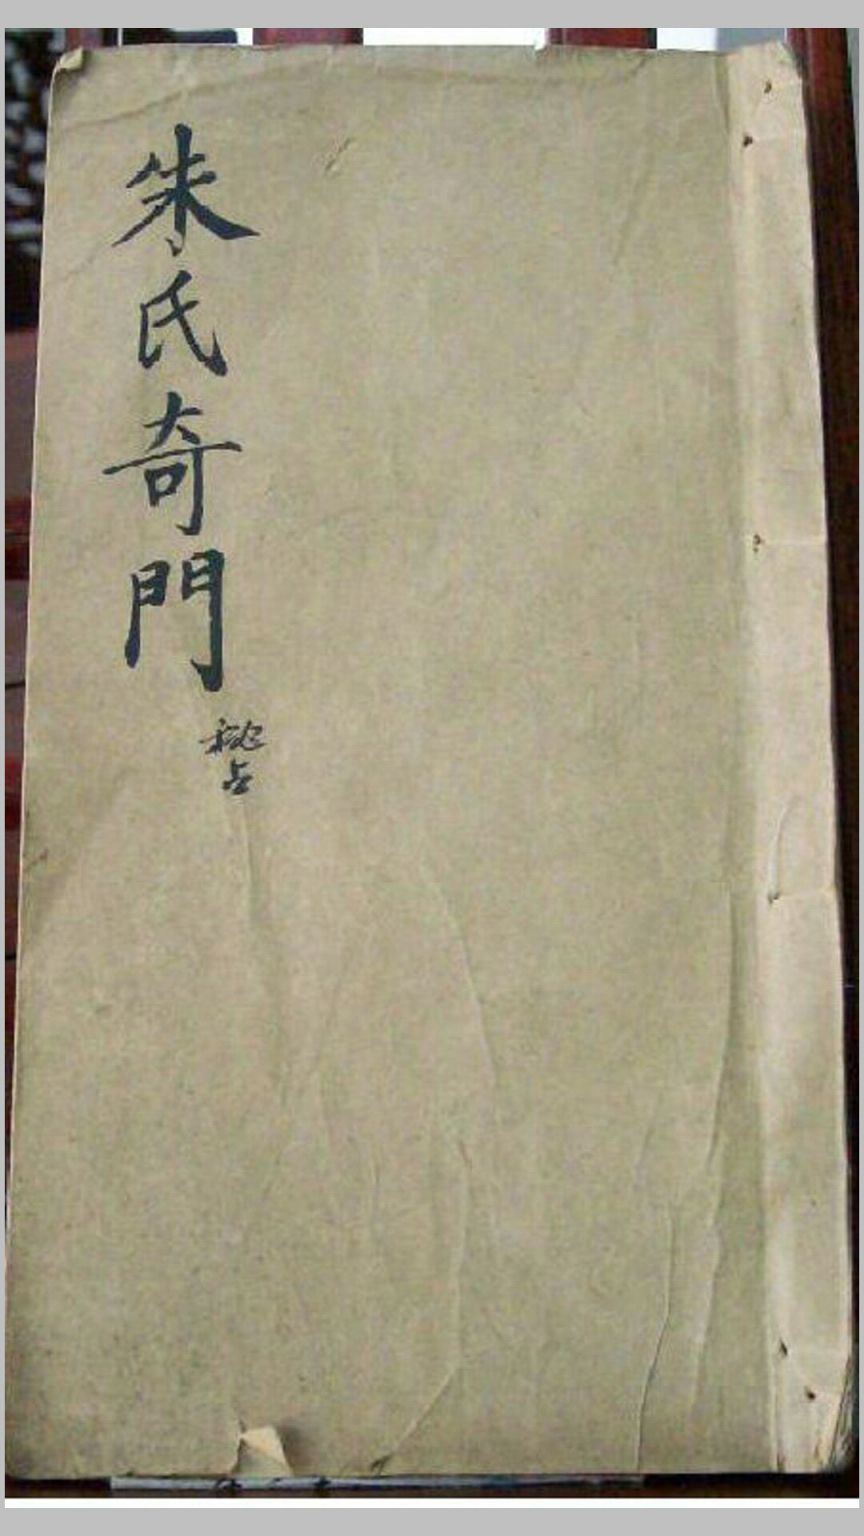 朱氏奇門
秘占